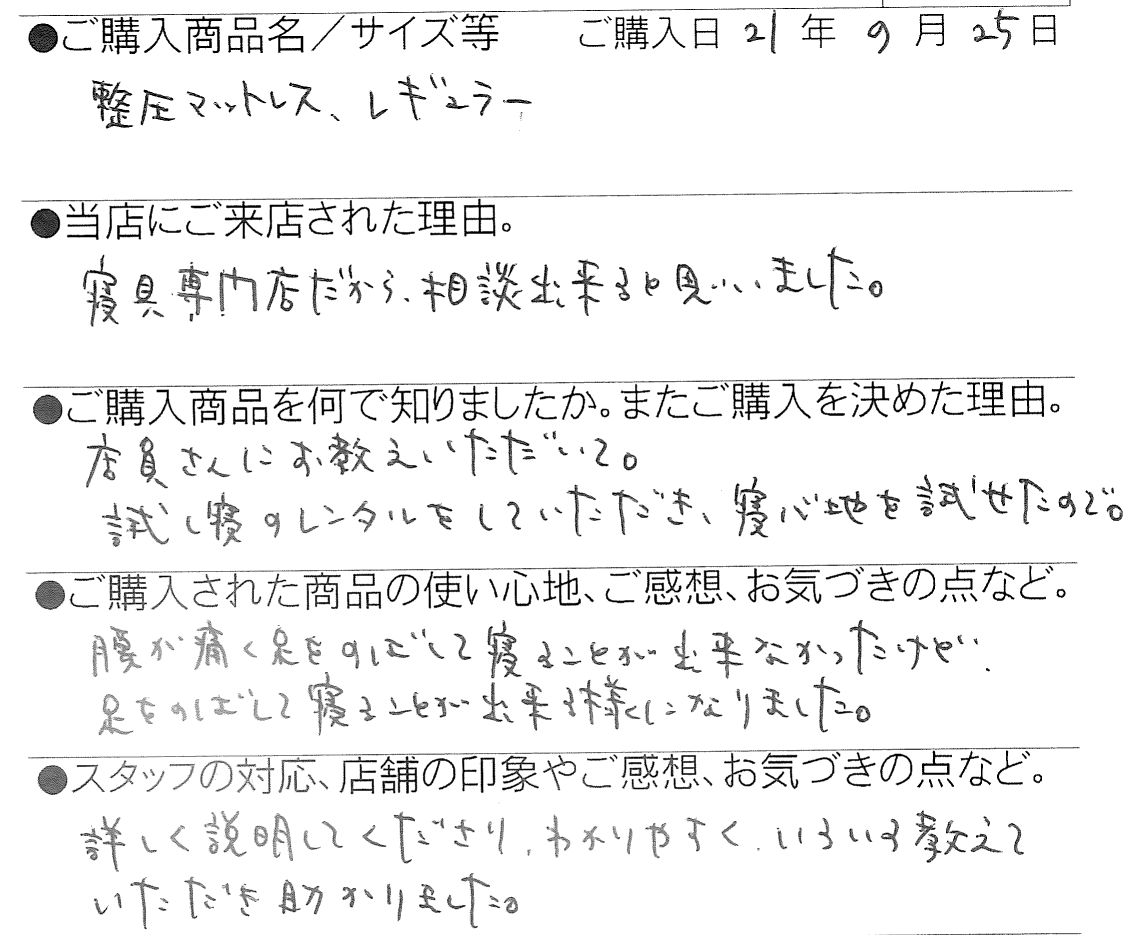 ●ご購入商品名／サイズ等 ご購入日 21年 9月 25日
整圧マットレス、レギュラー
●当店にご来店された理由。
寝具専門店だから、相談出来ると思いいました。
●ご購入商品を何で知りましたか。またご購入を決めた理由。
店員さんにお教えいただいて。
試し寝のレンタルをしていただき、寝心地を試せたので。
●ご購入された商品の使い心地、ご感想、お気づきの点など。
腰が痛く足をのばして寝ることが出来なかったけど、
足をのばして寝ることが出来る様になりました。
●スタッフの対応、店舗の印象やご感想、お気づきの点など。
詳しく説明してくださり、わかりやすく、いろいろ教えて
いただき助かりました。